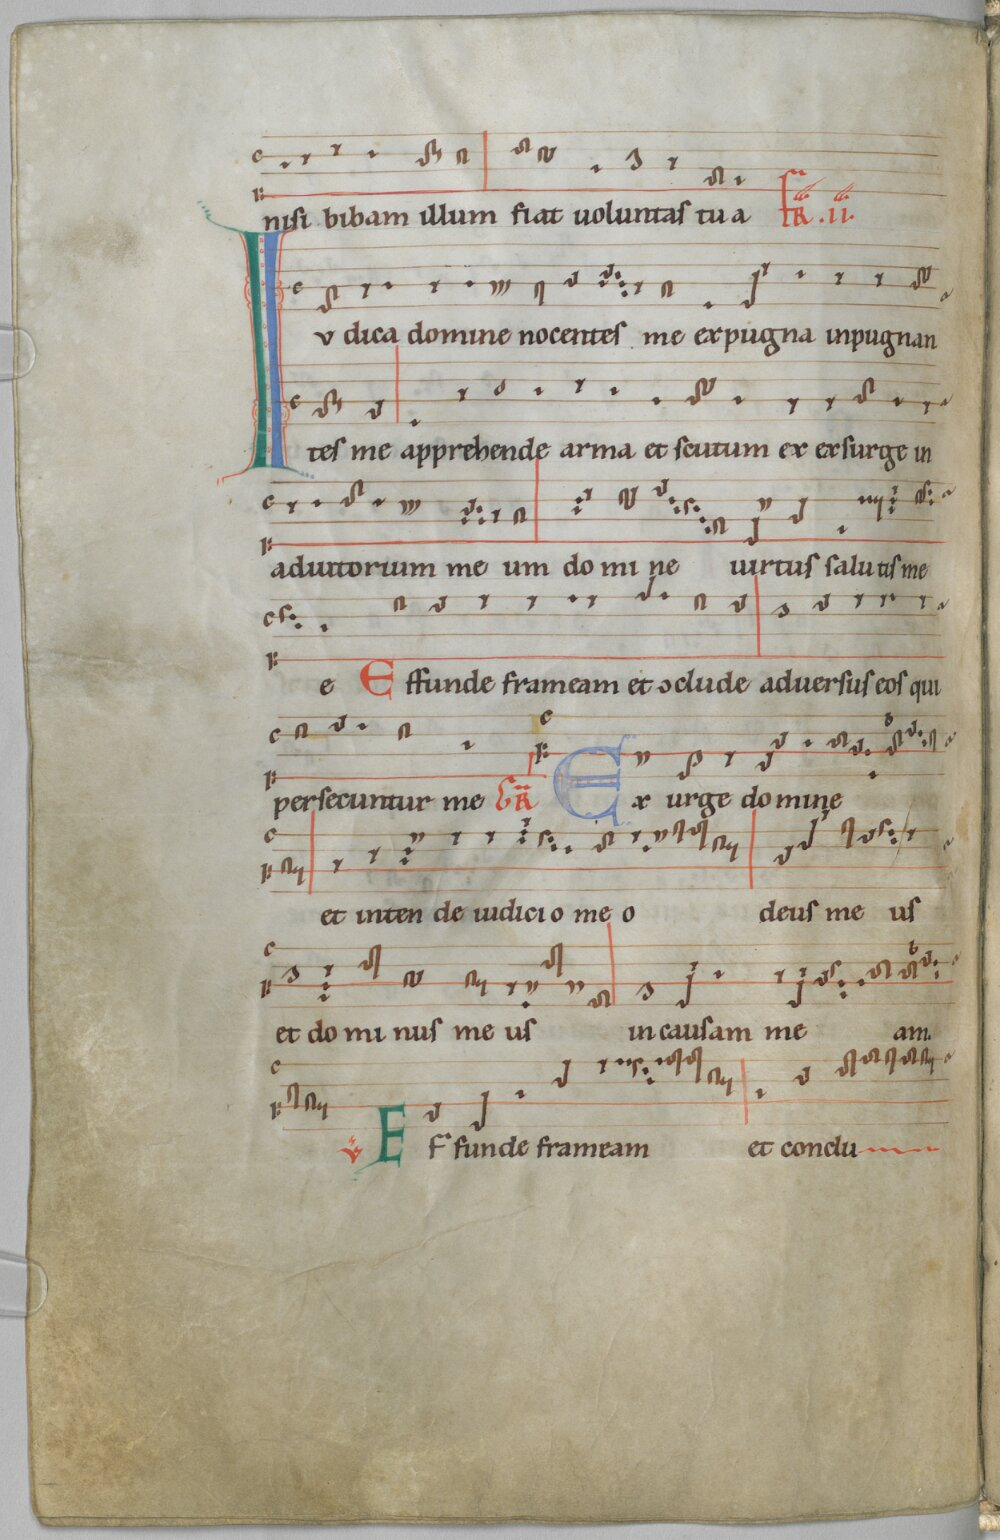 nisi bibam illum fiat uoluntas tu a fR .ii.
Iv dica domine nocentes me expugna inpugnan
tes me apprehende arma et scutum ex exsurge in
adiutorium me um do mi ne uirtus salutis me
e Effunde frameam et ɔclude aduersus eos qui
persecuntur me GR Ex urge domine
et inten de iudicio me o deus me us
et do mi nus me us in causam me am.
V Effunde frameam et conclu